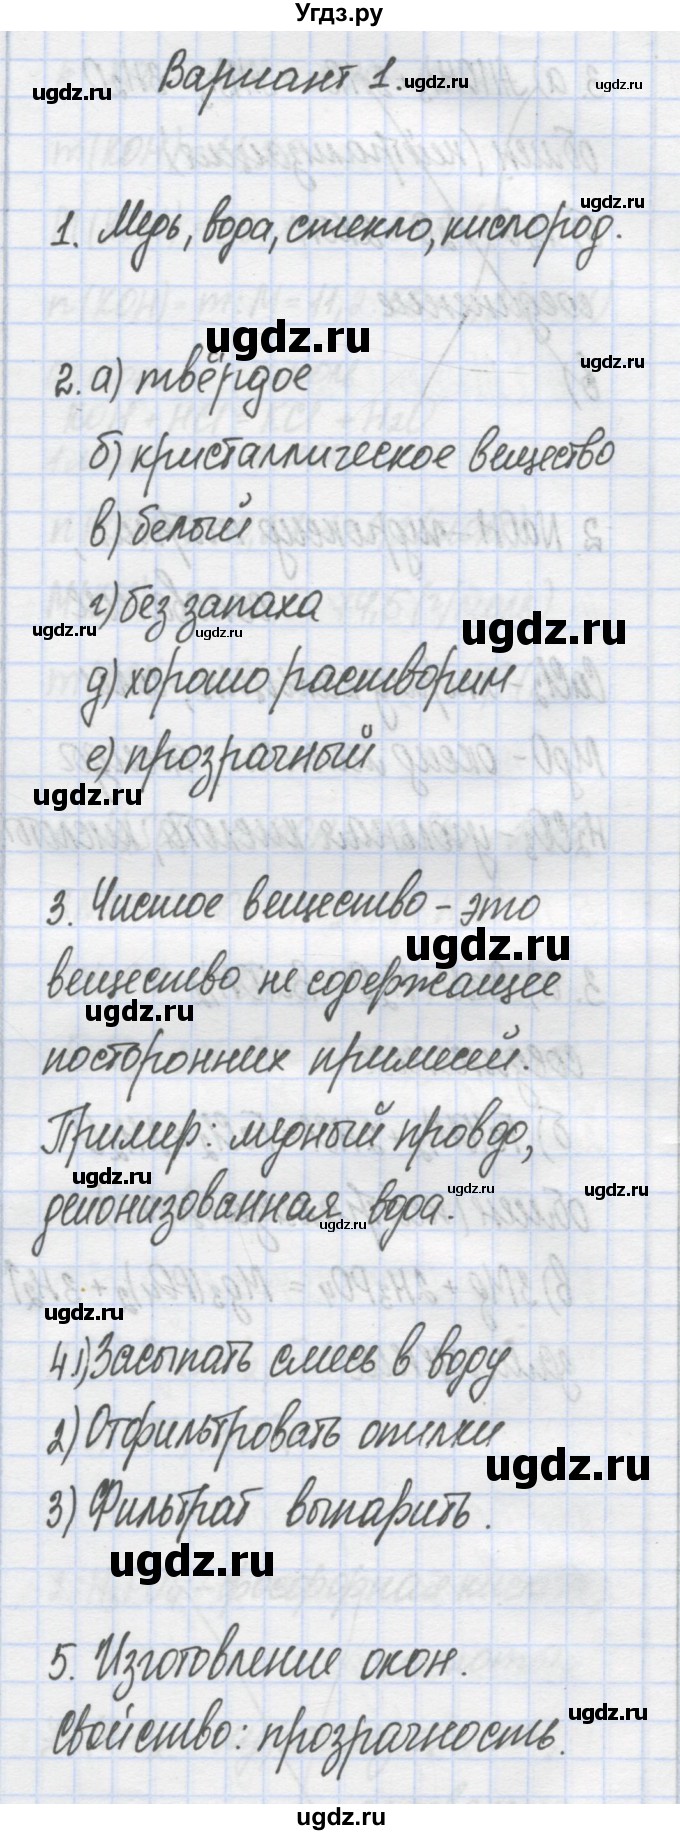 Угдз.ру
Вариант 1.
1. Медь, вода, стекло, кислород.
2. а) твёрдое
б) кристаллическое вещество
в) белый
г) без запаха
д) хорошо растворим
е) прозрачный
3. Чистое вещество - это
вещество не содержащее
посторонних примесей.
Пример: медный провод,
деионизованная вода.
4. 1) Засыпать смесь в воду
2) Отфильтровать опилки
3) Фильтрат выпарить.
5. Изготовление окон.
Свойство: прозрачность.
ugdz.ru